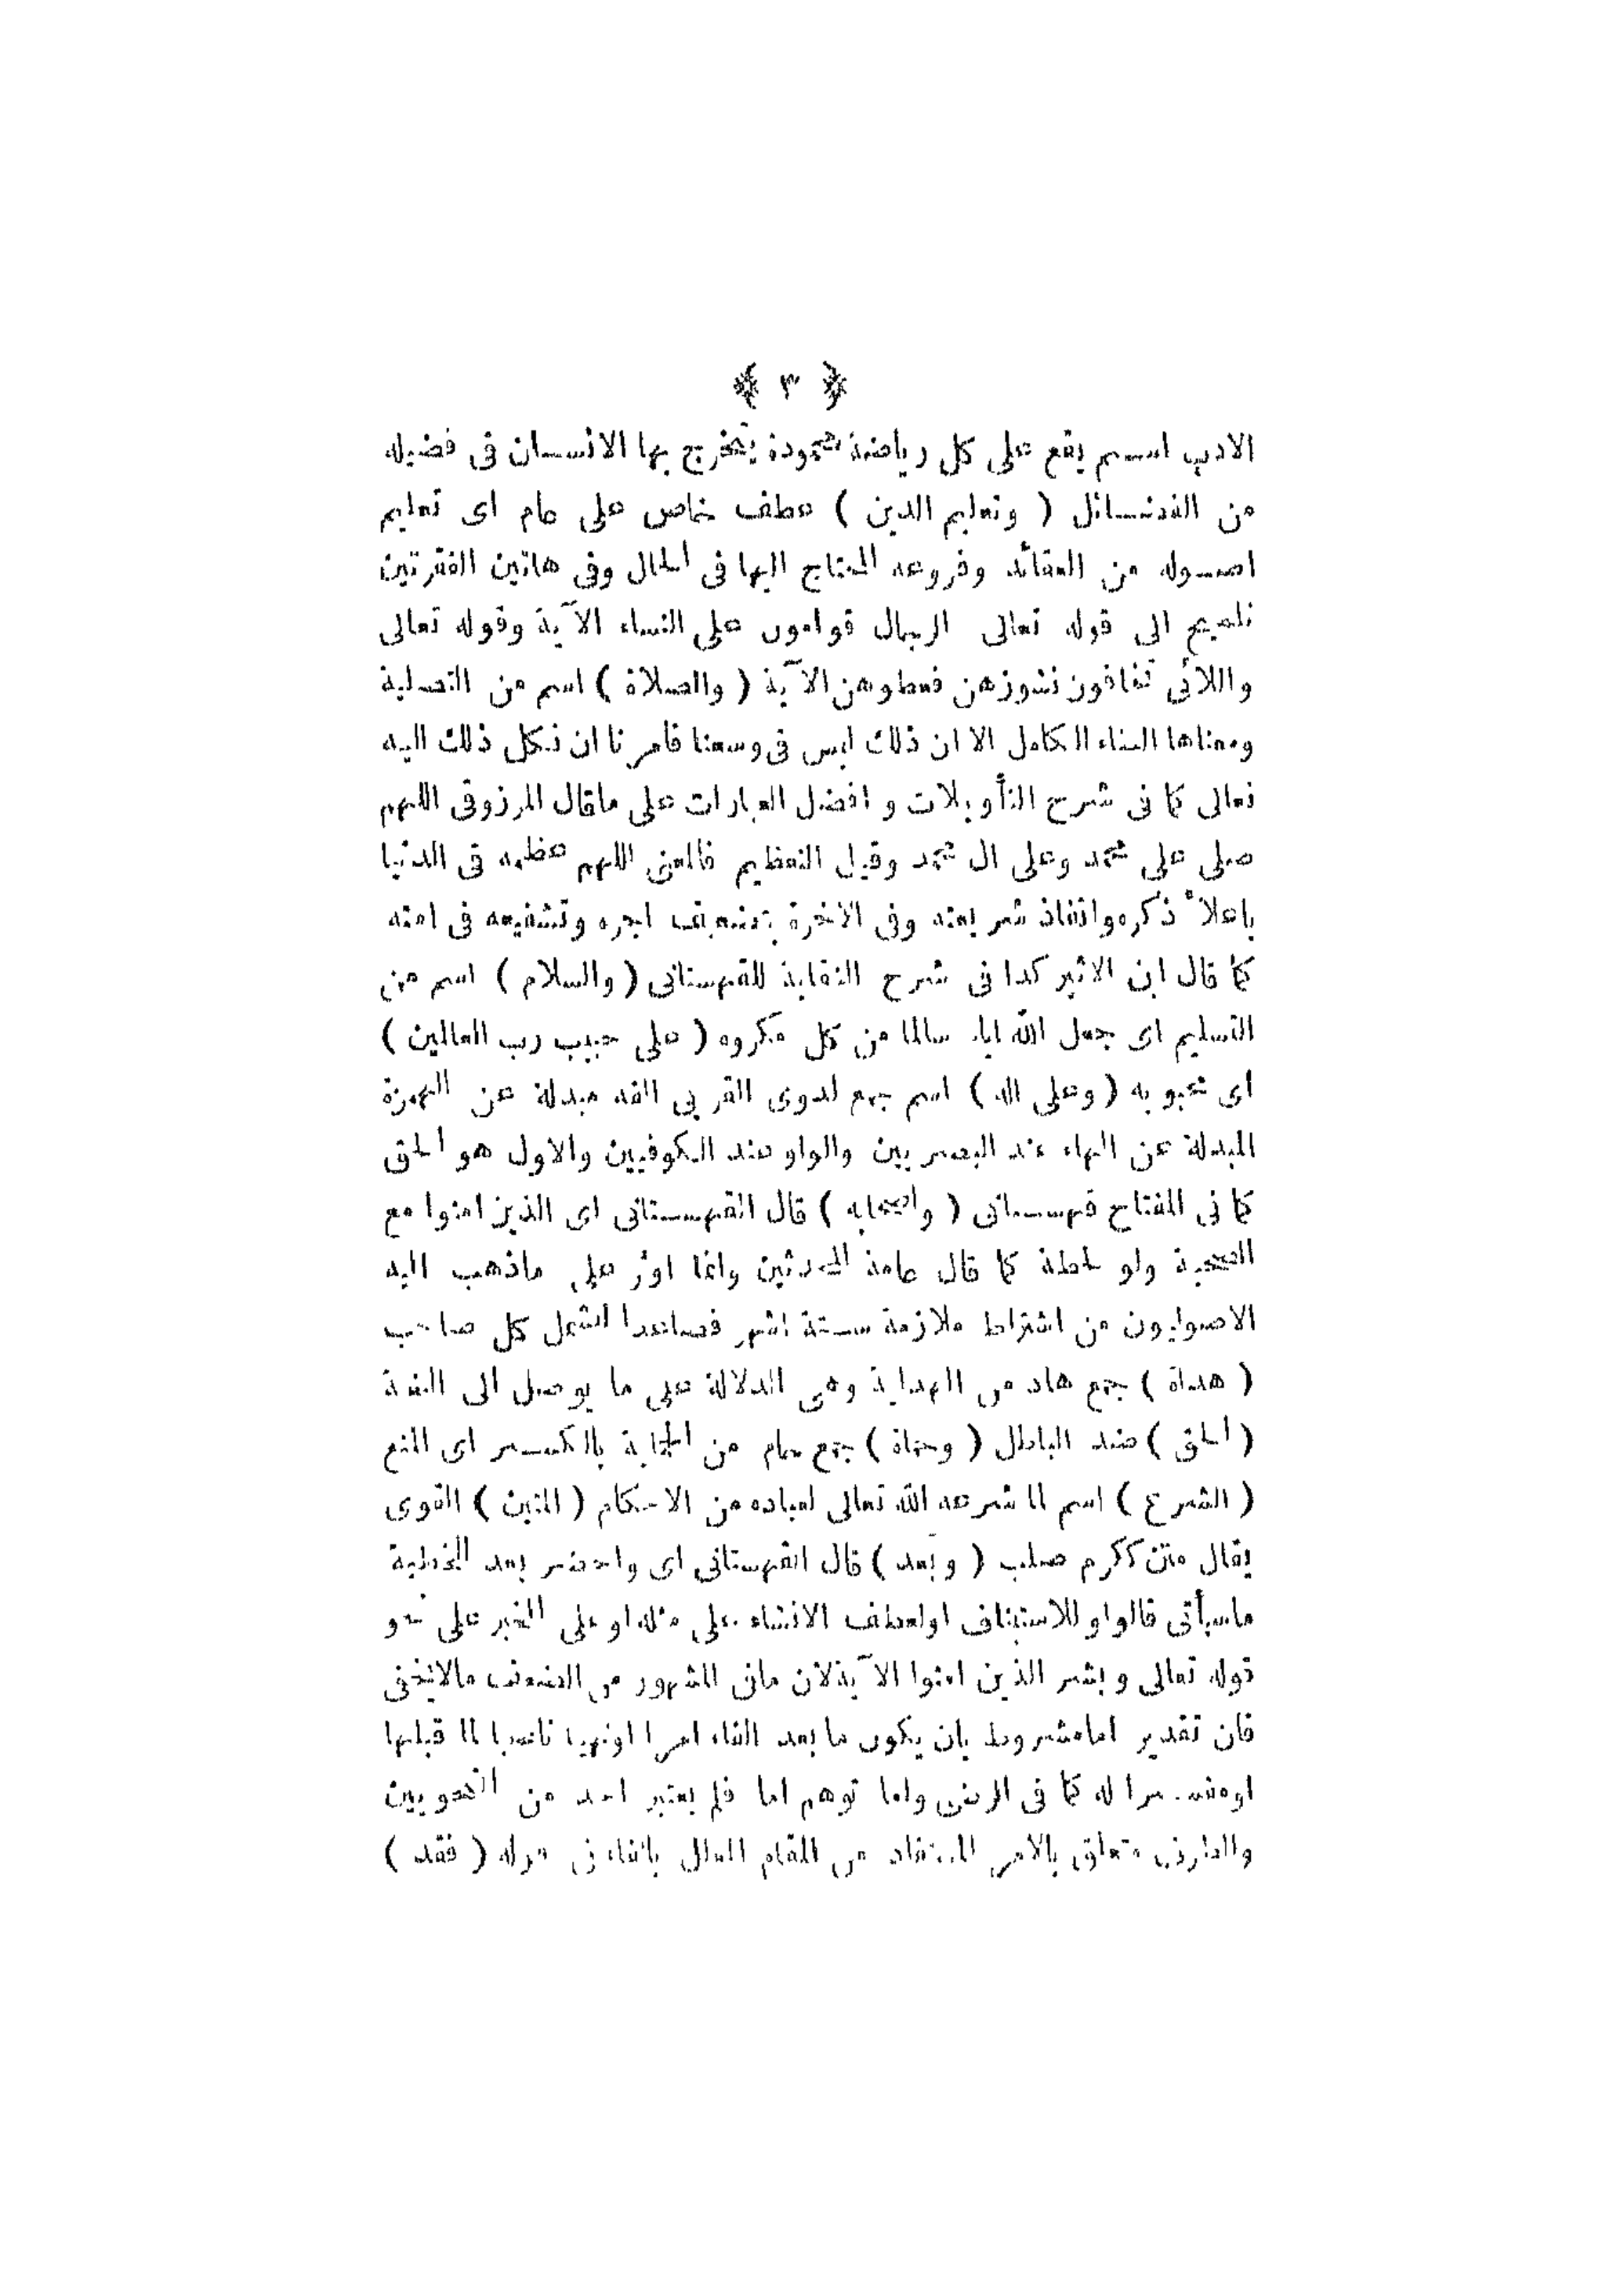 ﴿ ٣ ﴾
الادب اسم يقع على كل رياضة محمودة يتخرج بها الانسان فى فضيلة
من الفضائل ( وتعليم الدين ) عطف خاص على عام اى تعليم
اصوله من العقائد وفروعه المحتاج اليها فى الحال وفى هاتين الفقرتين
تلميح الى قوله تعالى الرجال قوامون على النساء الآية وقوله تعالى
واللائى تخافون نشوزهن فعظوهن الآية ( والصلاة ) اسم من التصلية
ومعناها الثناء الكامل الا ان ذلك ليس فى وسعنا فامرنا ان نكل ذلك اليه
تعالى كما فى شرح التأويلات وافضل العبارات على ماقال المرزوقى اللهم
صلى على محمد وعلى ال محمد وقيل التعظيم فالمعنى اللهم عظمه فى الدنيا
باعلاء ذكره وانفاذ شريعته وفى الاخرة بتضعيف اجره وتشفيعه فى امته
كما قال ابن الاثير كذا فى شرح النقاية للقهستانى ( والسلام ) اسم من
التسليم اى جعل الله اياه سالما من كل مكروه ( على حبيب رب العالمين )
اى محبوبه ( وعلى اله ) اسم جمع لذوى القربى الفه مبدلة عن الهمزة
المبدلة عن الهاء عند البصريين والواو عند الكوفيين والاول هو الحق
كما فى المفتاح قهستانى ( واصحابه ) قال القهستانى اى الذين امنوا مع
الصحبة ولو لحظة كما قال عامة المحدثين وانما اوثر على ماذهب اليه
الاصوليون من اشتراط ملازمة ستة اشهر فصاعدا لتشمل كل صاحب
( هداة ) جمع هاد من الهداية وهى الدلالة على ما يوصل الى البغية
( الحق ) ضد الباطل ( وحماة ) جمع حام من الحماية بالكسر اى المنع
( الشرع ) اسم لما شرعه الله تعالى لعباده من الاحكام ( المتين ) القوى
يقال متن ككرم صلب ( وبعد ) قال القهستانى اى واحضر بعد الخطبة
ماسيأتى فالواو للاستيناف اولعطف الانشاء على مثله او على الخبر على نحو
قوله تعالى وبشر الذين امنوا الآية لان مافى المشهور من الضعف مالايخفى
فان تقدير امامشروط بان يكون ما بعد الفاء امرا اونهيا ناصبا لما قبلها
اومفسرا له كما فى الرضى واما توهم اما فلم يعتبر احد من النحويين
والظرف متعلق بالامر المستفاد من المقام العالى بالفاء فى قوله ( فقد )